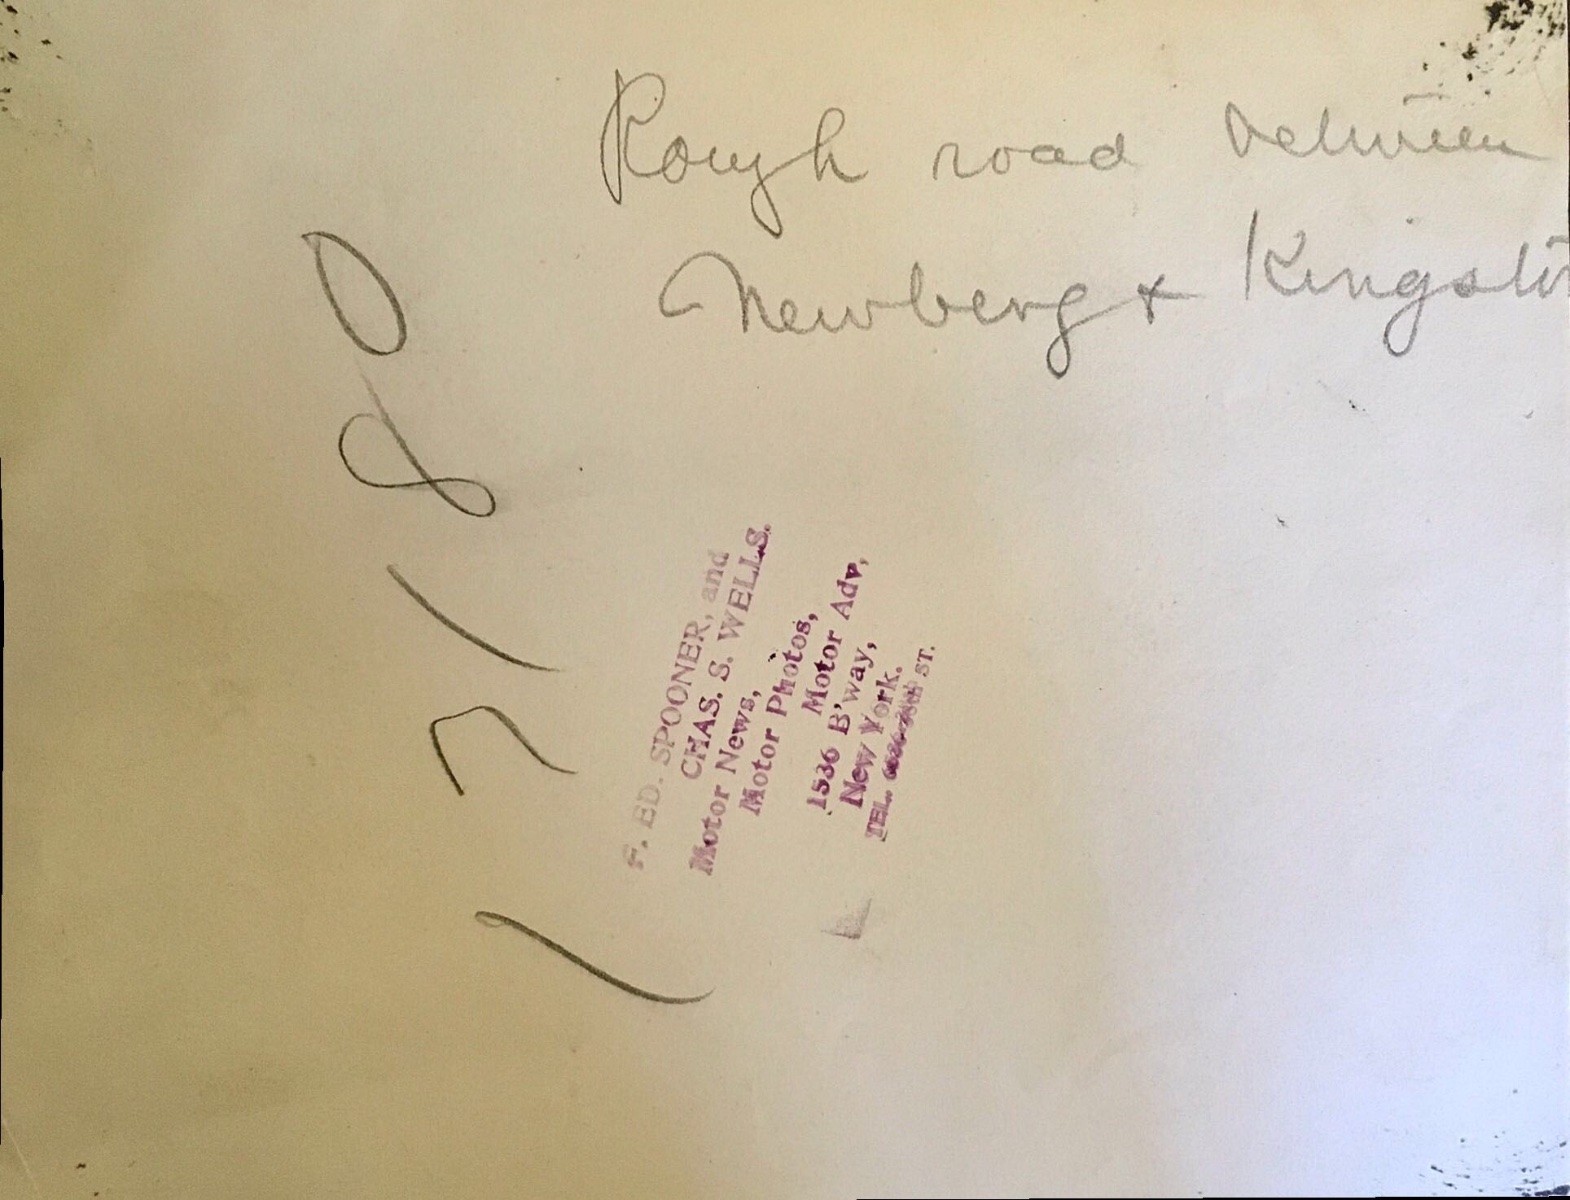 Rough road between
Newberg & Kingston
17180
F. ED. SPOONER, and
CHAS. S. WELLS.
Motor News,
Motor Photos,
Motor Adv,
1536 B'way,
New York.
TEL. ST.